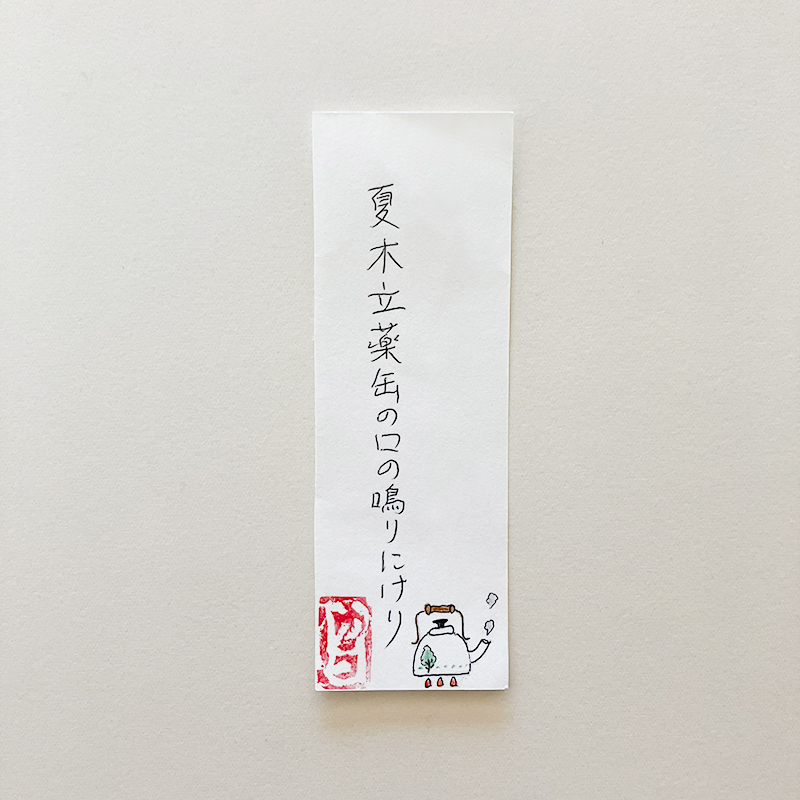 夏木立薬缶の口の鳴りにけり